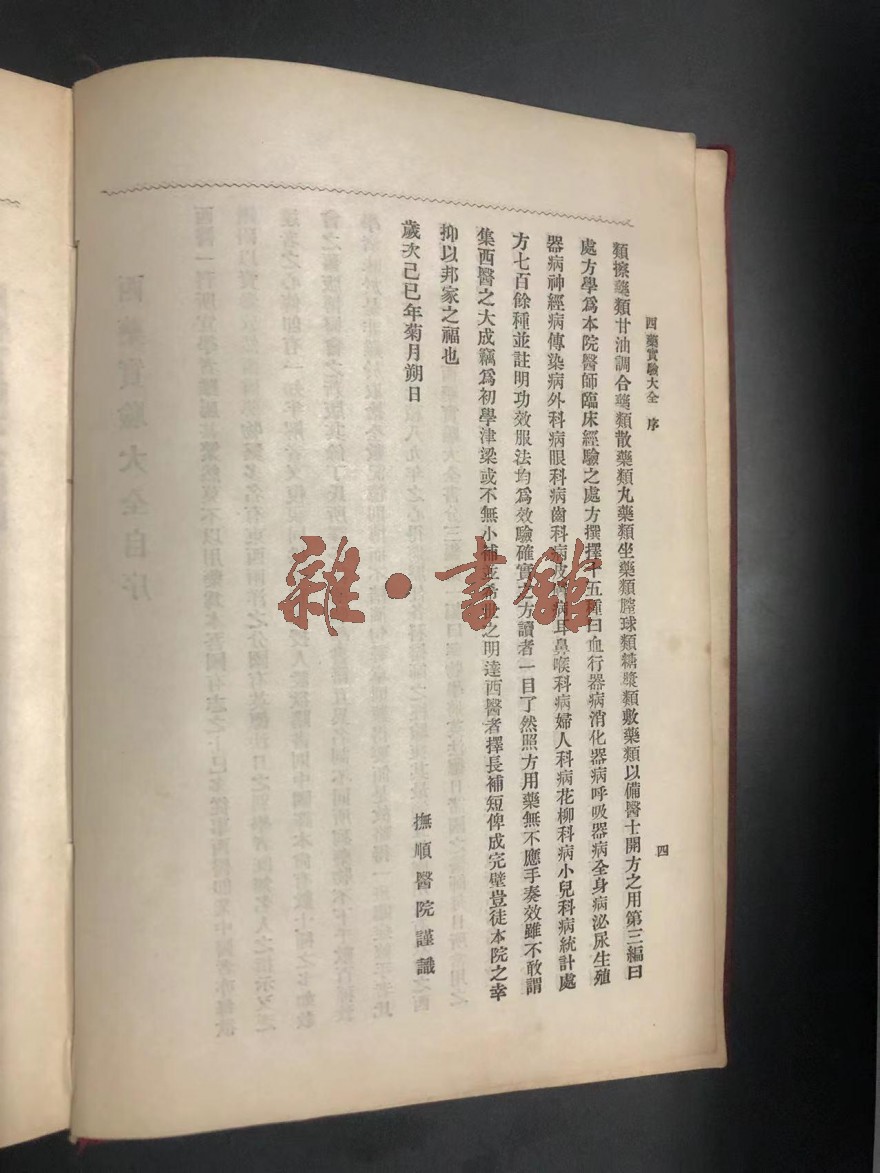 西藥實驗大全 序
四
類擦藥類甘油調合藥類散藥類丸藥類坐藥類膣球類糖漿類敷藥類以備醫士開方之用第三編曰
處方學爲本院醫師臨床經驗之處方撰擇十五種曰血行器病消化器病呼吸器病全身病泌尿生殖
器病神經病傳染病外科病眼科病齒科病皮膚病耳鼻喉科病婦人科病花柳科病小兒科病統計處
方七百餘種並註明功效服法均爲效驗確實之方讀者一目了然照方用藥無不應手奏效雖不敢謂
集西醫之大成竊爲初學津梁或不無小補並希世之明達西醫者擇長補短俾成完壁豈徒本院之幸
抑以邦家之福也
歲次己巳年菊月朔日
撫順醫院謹識
雜·書館